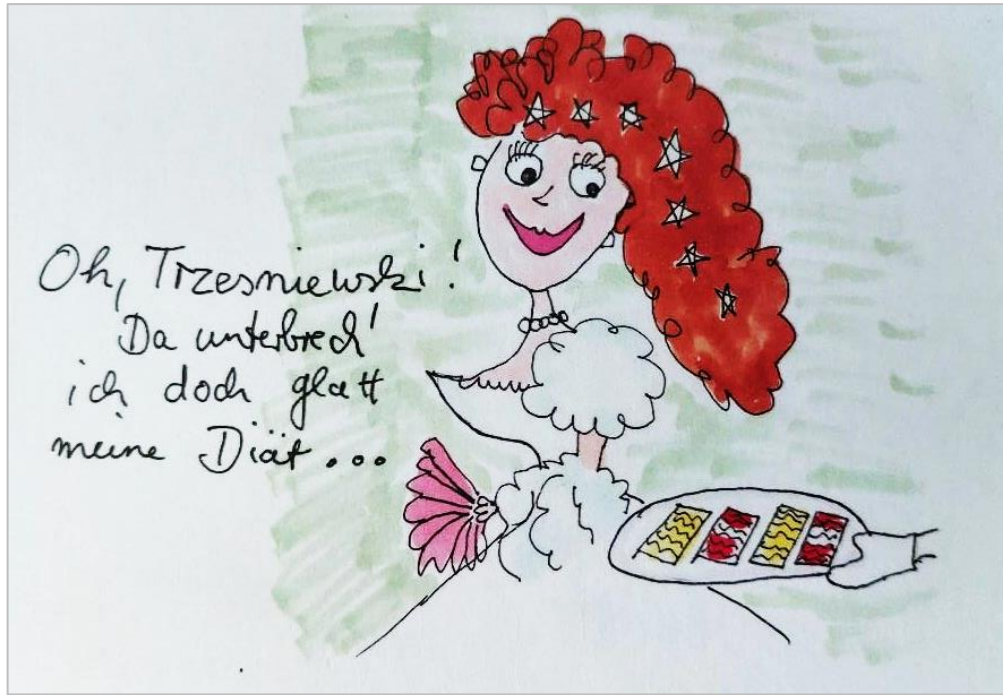 Oh, Trzesniewski!
Da unterbrech'
ich doch glatt
meine Diät...